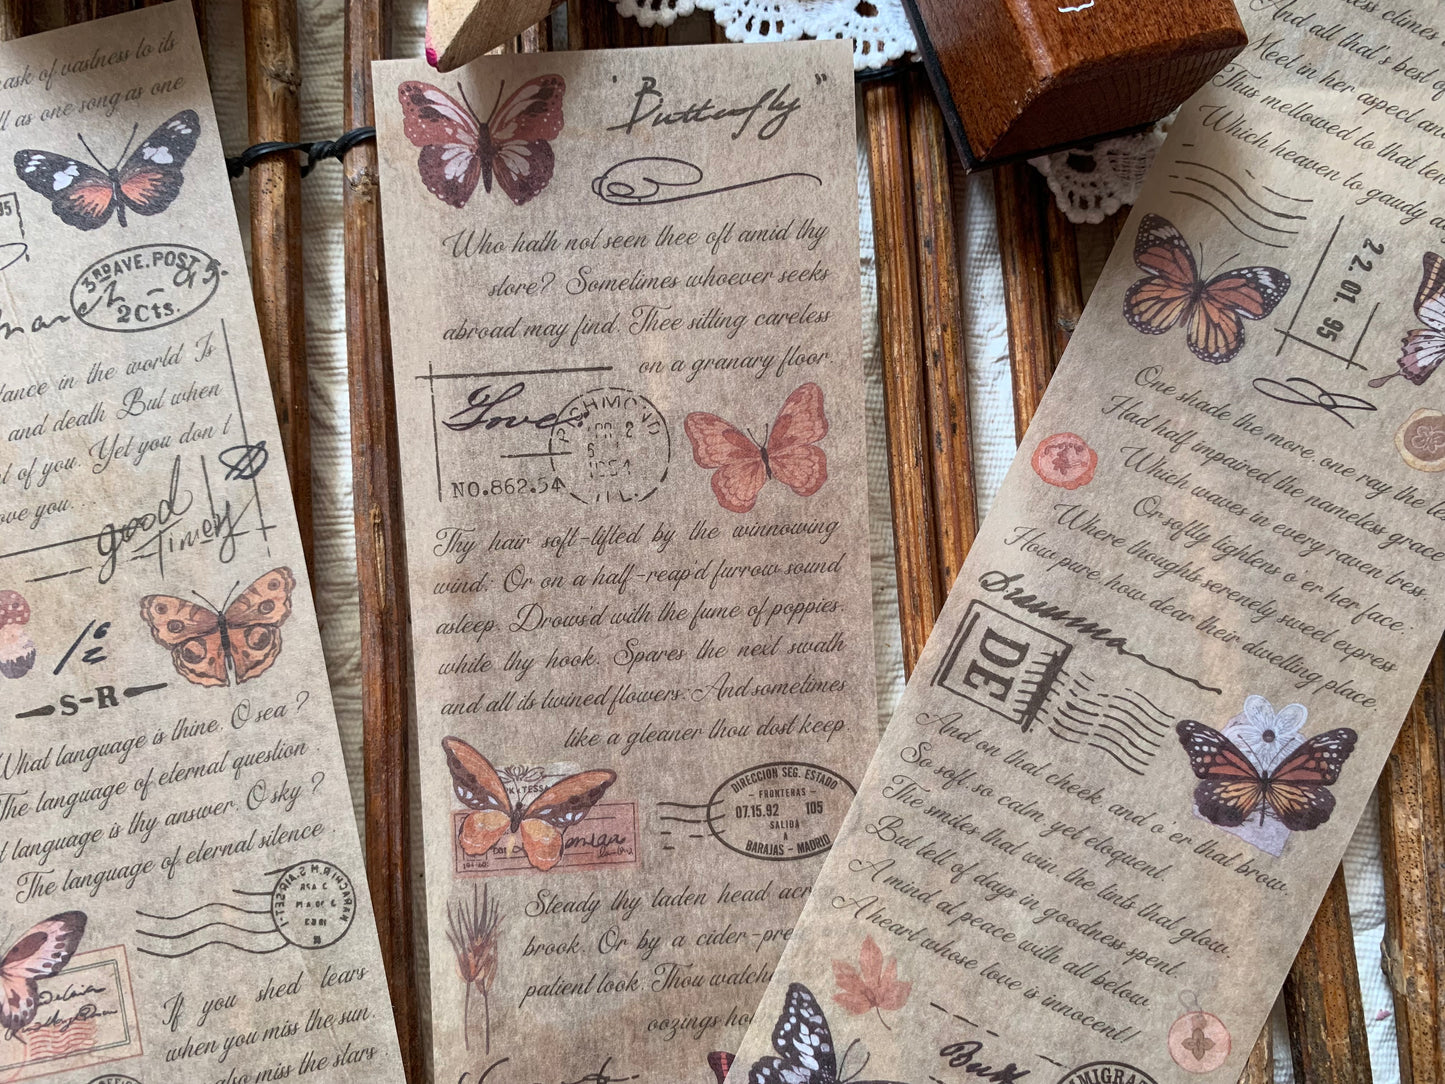 mask of vastness to its
as one song as one
3RD AVE. POST
2Cts.
95
dance in the world Is
and death But when
of you. Yet you don t
love you. . .
good
Timely
S-R
What language is thine. O sea ?
The language of eternal question .
language is thy answer. O sky ?
The language of eternal silence .
If you shed tears
when you miss the sun.
also miss the stars .
"Butterfly"
Who hath not seen thee oft amid thy
store? Sometimes whoever seeks
abroad may find. Thee sitting careless
on a granary floor.
Love
RICHMOND
1954
NO.862.54
Thy hair soft-lifted by the winnowing
wind: Or on a half-reap'd furrow sound
asleep. Drows'd with the fume of poppies.
while thy hook. Spares the next swath
and all its twined flowers: And sometimes
like a gleaner thou dost keep
DIRECCION SEG. ESTADO
- FRONTERAS -
07.15.92 105
SALIDA
A
BARAJAS - MADRID
Steady thy laden head
brook. Or by a
patient look. Thou
oozings
climes
And all that's best of
Meet in her aspect and
Thus mellowed to that
Which heaven to gaudy
22.01.95
One shade the more, one ray the
Had half impaired the nameless grace
Which waves in every raven tress.
Or softly lightens o'er her face.
Where thoughts serenely sweet express
How pure, how dear their dwelling place.
DE
And on that cheek, and o'er that brow,
So soft, so calm, yet eloquent
The smiles that win, the tints that glow.
But tell of days in goodness spent
A mind at peace with all below
A heart whose love is innocent!